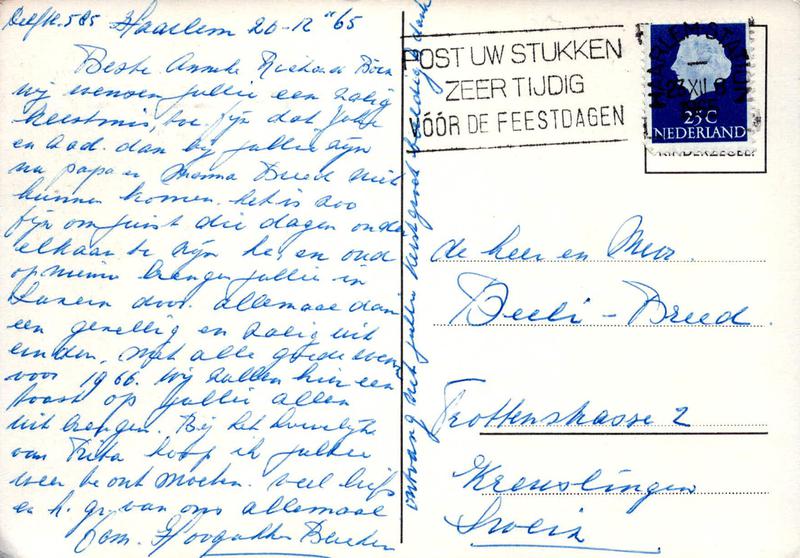 Delftstr. 585 Haarlem 20-12 "65
Beste Anneke Richard
wij wensen jullie een zalig
kerstmis, fijn dat
en dan bij jullie zijn
nu papa en mama Breed niet
kunnen komen. het is zoo
fijn om juist die dagen onder
elkaar te zijn en oud
op nieuw brengen jullie in
Luzern door. allemaal dan
een gezellig en zalig uit
einden, met alle goede
voor 1966. wij zullen hier een
toast op jullie allen
uit brengen. Bij het huwelijk
van hoop ik jullie
weer te ont moeten. veel liefs
en h. gr. van ons allemaal
fam.
ontvang met jullie kerstgroet dank
POST UW STUKKEN
ZEER TIJDIG
VÓÓR DE FEESTDAGEN
HAARLEM STATION
23 XII
25 C
NEDERLAND
KINDERZEGEL
de heer en Mevr.
Beeli - Breed.
Trottenstrasse 2
Kreuzlingen
Sweiz